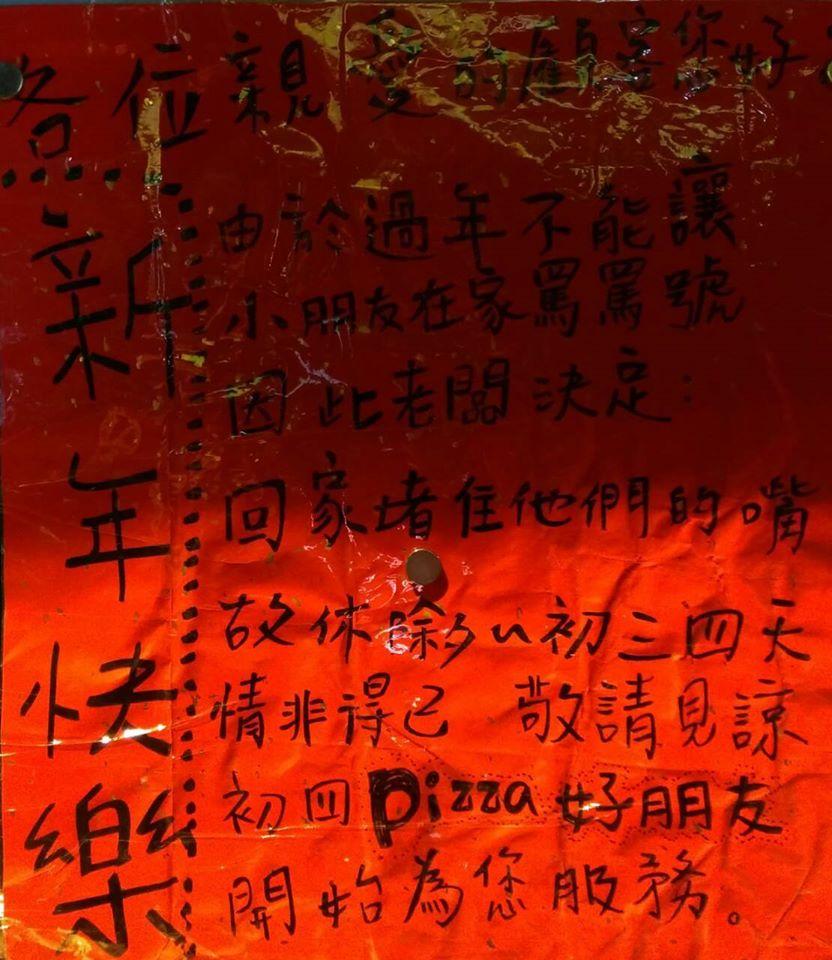 各位親愛的顧客您好
新年快樂
由於過年不能讓
小朋友在家罵罵號
因此老闆決定：
回家堵住他們的嘴
故休除夕~初三四天
情非得已 敬請見諒
初四pizza好朋友
開始為您服務。